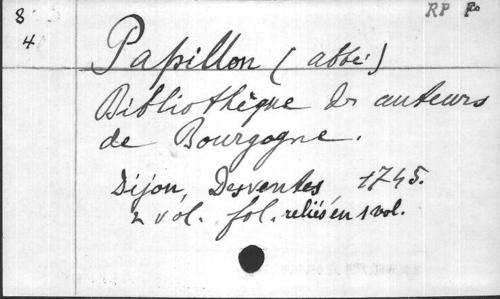 8
4
RP Ro
Papillon (abbé)
Bibliothèque des auteurs
de Bourgogne.
Dijon, Desventes 1745.
2 vol. fol. reliés en 1 vol.